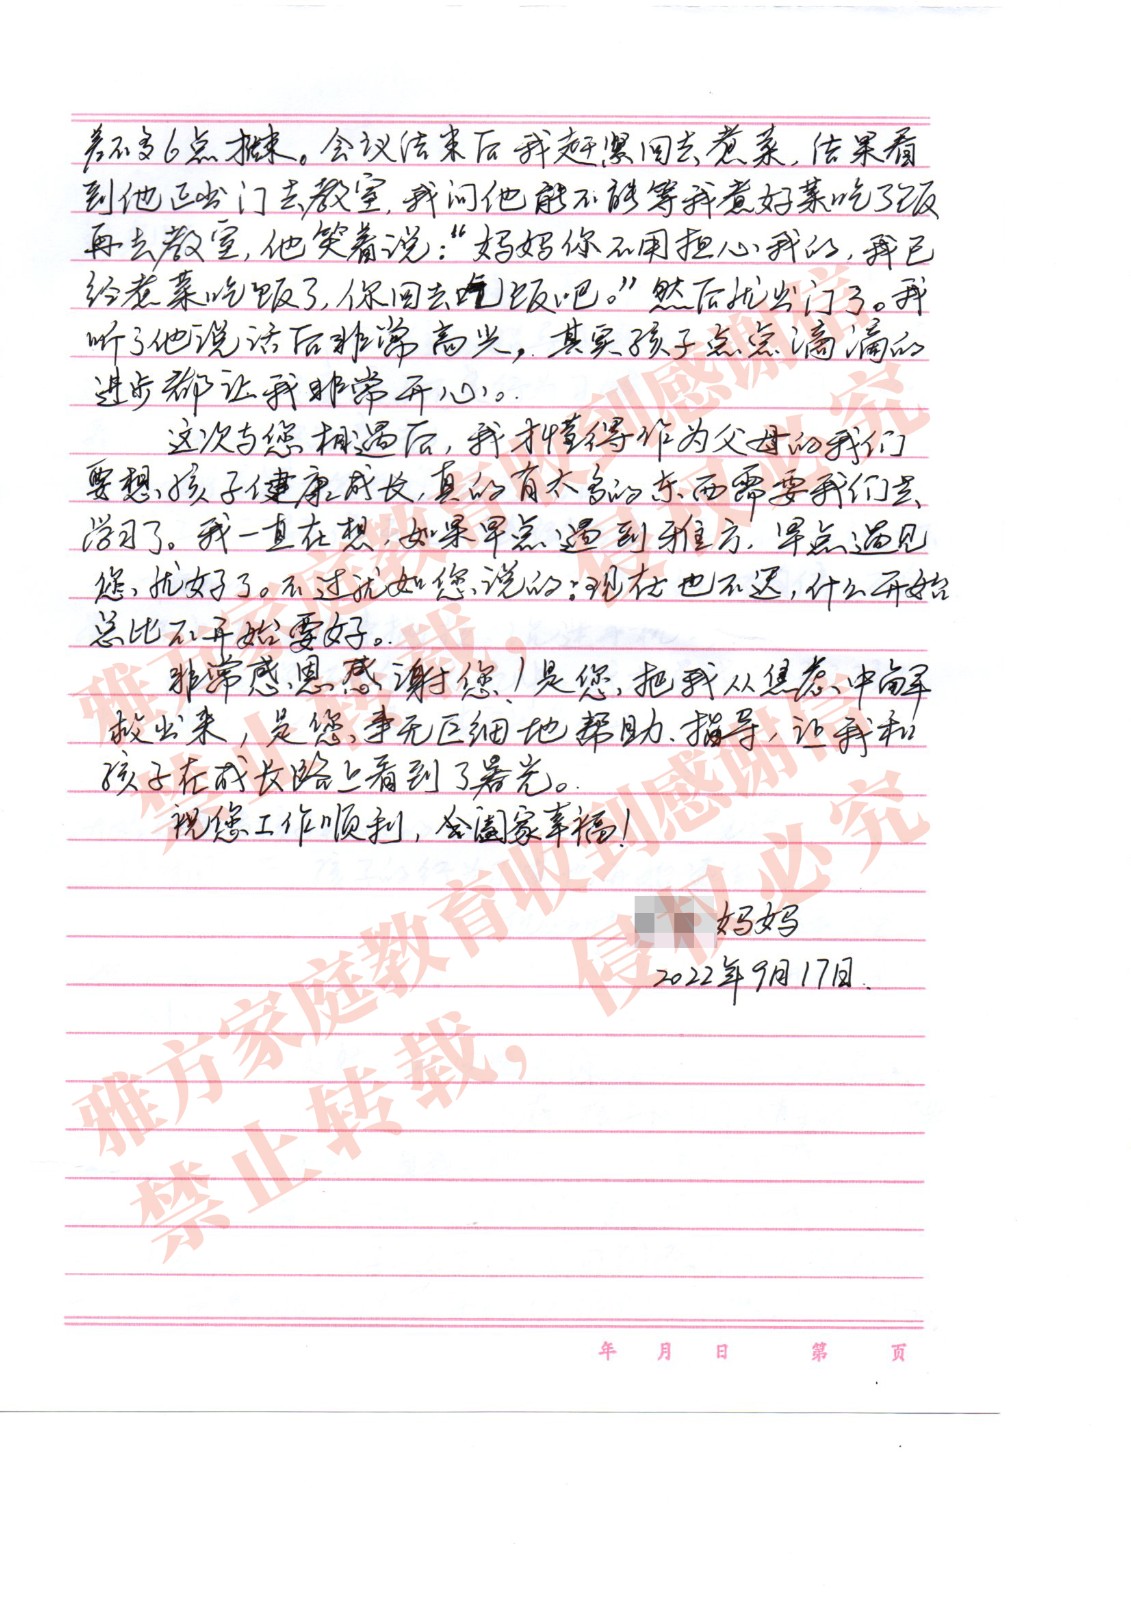 差不多6点才结束。会议结束后我赶紧回去煮菜,结果看
到他正出门去教室,我问他能不能等我煮好菜吃了饭
再去教室,他笑着说:“妈妈你不用担心我的,我已
经煮菜吃饭了,你回去吃饭吧。”然后就出门了。我
听了他说话后非常高兴,其实孩子点点滴滴的
进步都让我非常开心。
这次与您相遇后,我才懂得作为父母的我们
要想孩子健康成长,真的有太多的东西需要我们去
学习了。我一直在想,如果早点遇到雅方,早点遇见
您,就好了。不过就如您说的:现在也不迟,什么开始
总比不开始要好。
非常感恩感谢您!是您把我从焦虑中解
救出来,是您事无巨细地帮助、指导,让我和
孩子在成长路上看到了曙光。
祝您工作顺利,合阖家幸福!
妈妈
2022年9月17日.
雅方家庭教育收到感谢信
禁止转载,侵权必究
雅方家庭教育收到感谢信
禁止转载,侵权必究
年 月 日 第 页